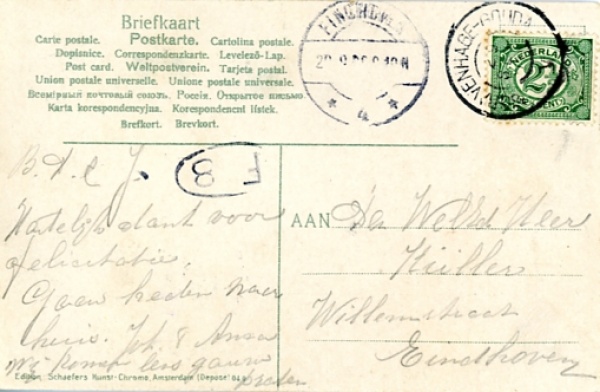 Briefkaart
Carte postale. Postkarte. Cartolina postale.
Dopisnice. Correspondenzkarte. Levelező-Lap.
Post card. Weltpostverein. Tarjeta postal.
Union postale universelle. Unione postale universale.
Всемірный почтовый союзъ. Россія. Открытое письмо
Karta korespondencyjna. Korespondencni listek.
Brefkort. Brevkort.
EINDHOVEN
4
VENHAGE-GOUDA
NEDERLAND
2½
CENT
F 8
Hartelijk dank voor
felicitatie.
Gaan heden naar
huis. Joh. & Anna
AAN Den WelEd Heer
Küller
Willemstraat
Eindhoven
Edition: Schaefers Kunst-Chromo, Amsterdam (Deposé)